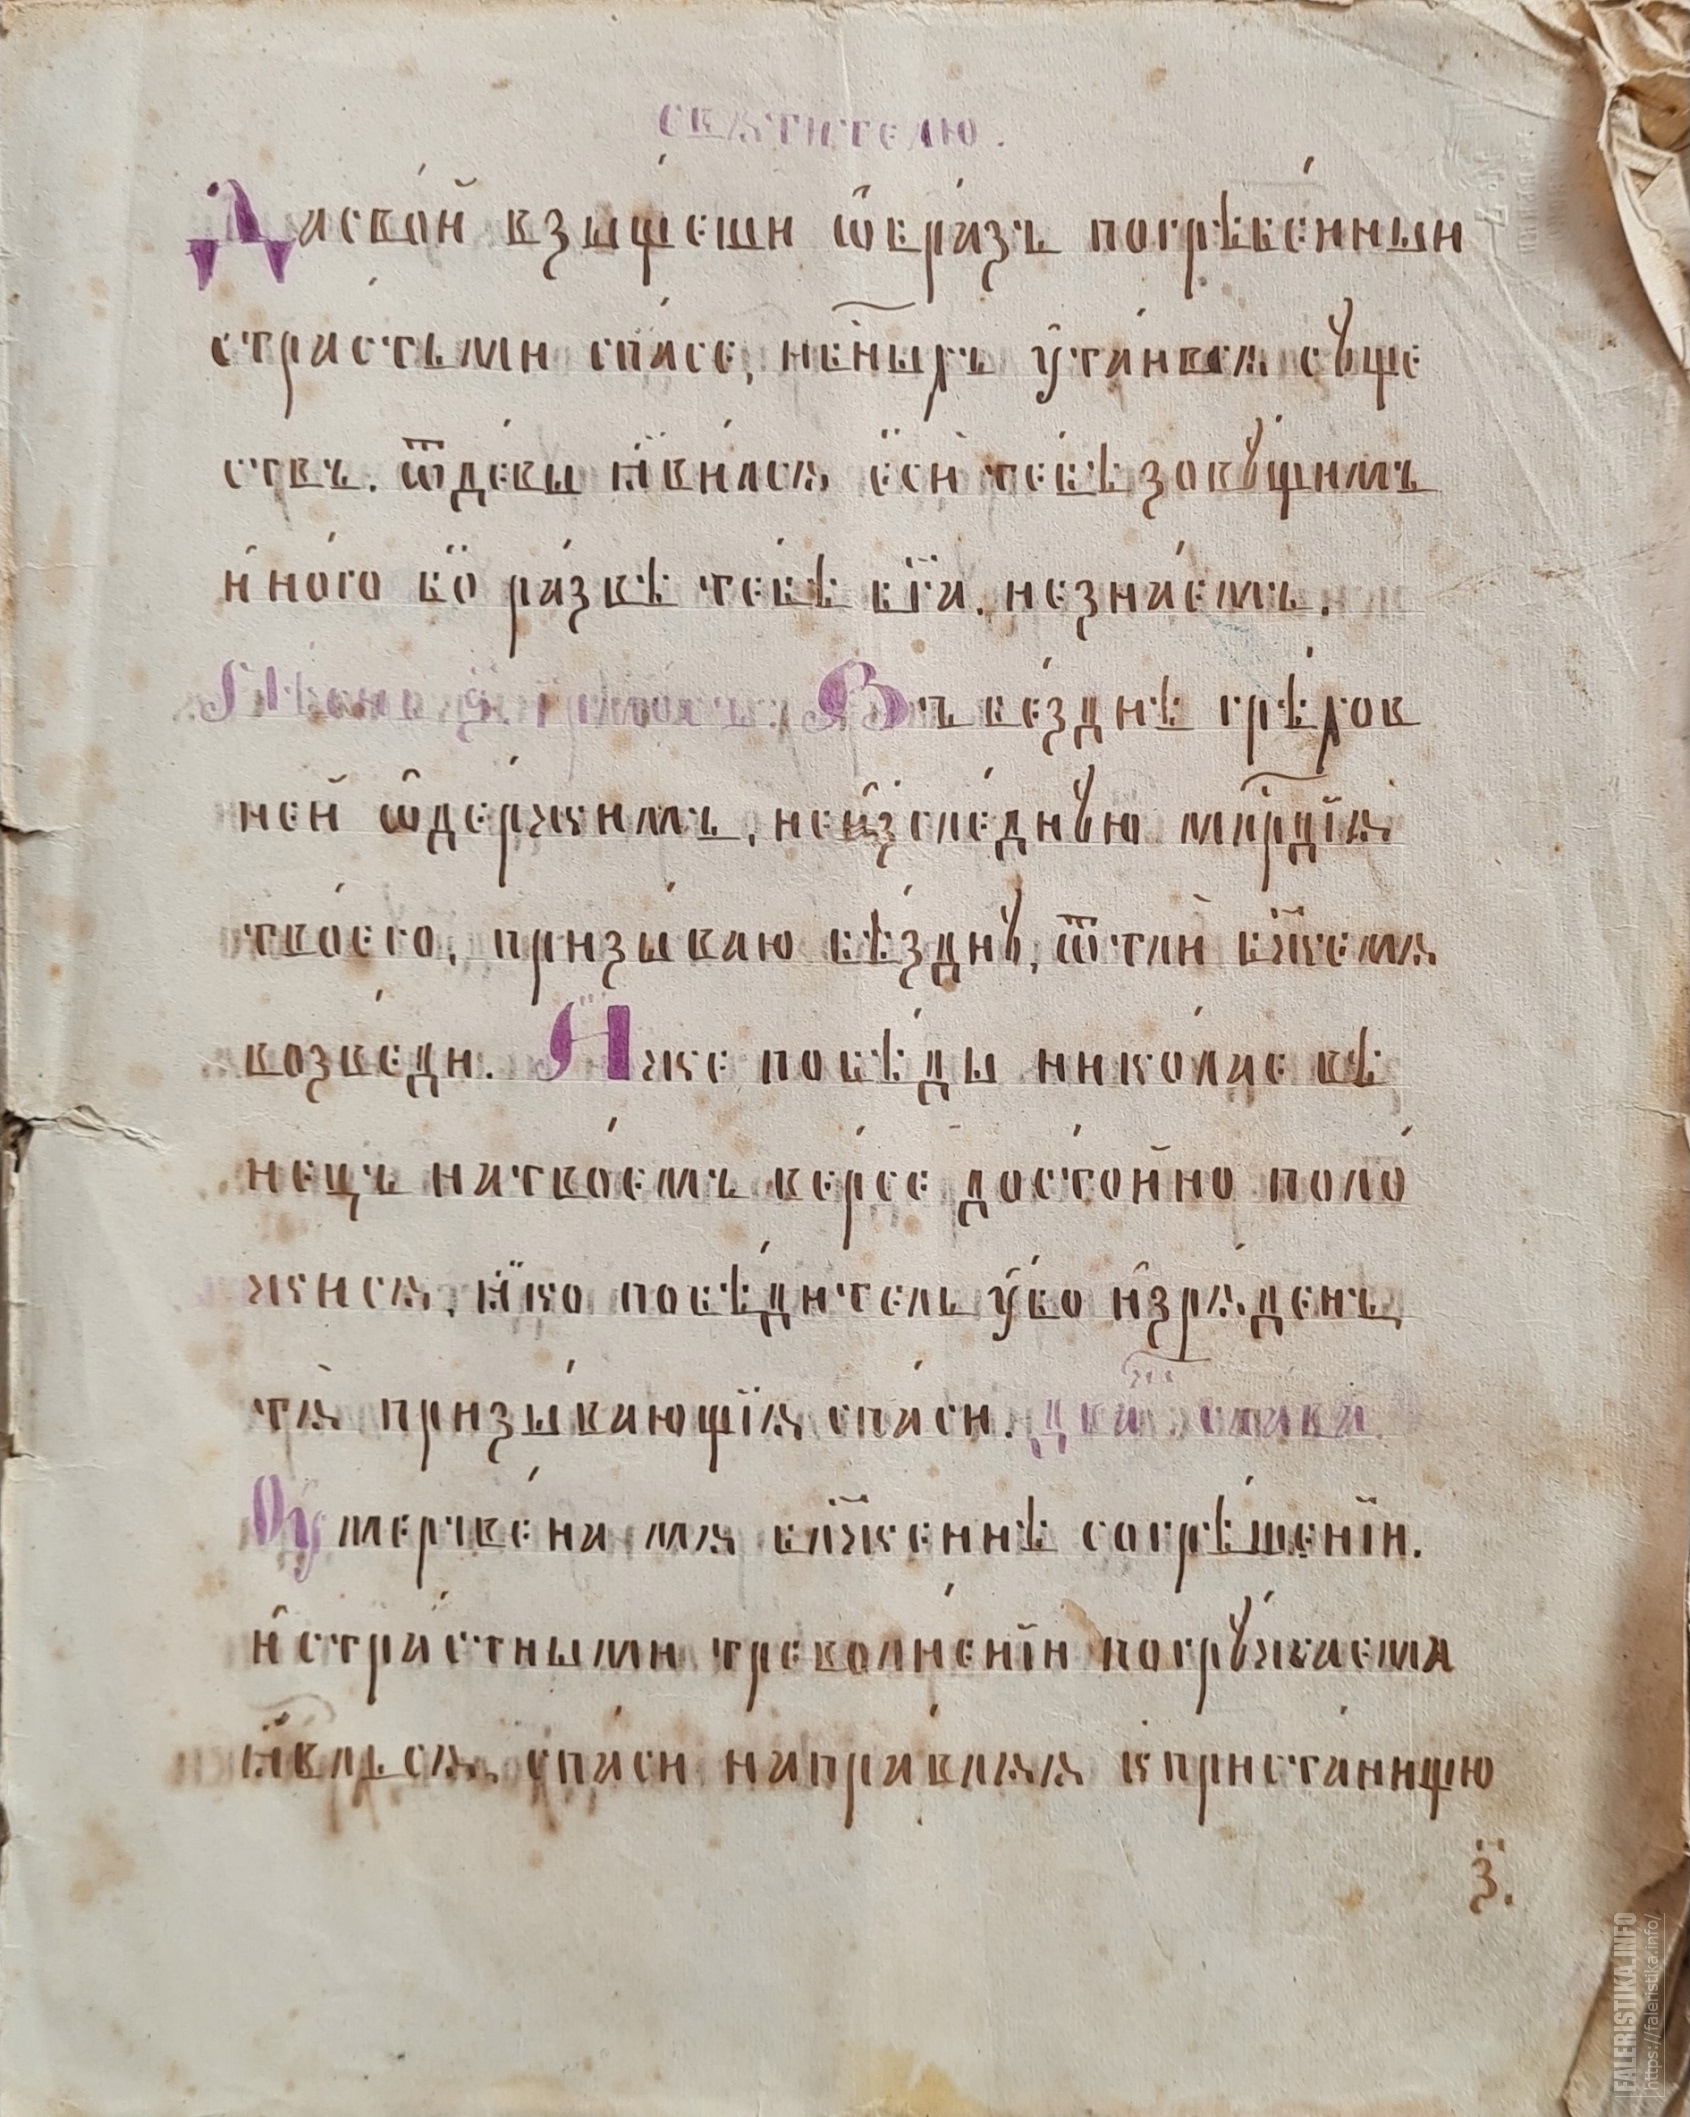 святителю.
Дасво́й взы́щеши ѡ҆́бра́зъ погрѣбе́нныи
стра́стьми спа́се, нб҃ныхъ у҆таи́вся сꙋще
ствъ. ѿде́вы ꙗ҆ви́лся е҆сѝ тебѣ̀ зовꙋ́щимъ
и҆но́го во̀ ра́звѣ тебѣ̀ бг҃а. незна́емъ.
Въ бе́зднѣ грѣхов
ней ѡ҆держимъ, неи҆зслѣ́днꙋю млⷭ҇рдїя
твоего̀, призыва́ю бѣ́зднꙋ, ѿтлѝ бж҃емя
возведи. И҆же побѣ́ды нико́лае вѣ
нецъ натвое́мъ ве́рсе досто́йно поло́
жися, ꙗ҆́ко побѣди́тель у҆́бо и҆зря́денъ,
тя̀ призыва́ющїя спаси. два̀ слава
Оумерщве́на мя бл҃женнѣ согрѣше́нїи.
и҆стра́стными треволне́нїи погрꙋжа́ема
ꙗ҆вл́ься спаси́ направля́я кприста́нищю
з҃.
FALERISTIKA.INFO
https://faleristika.info/